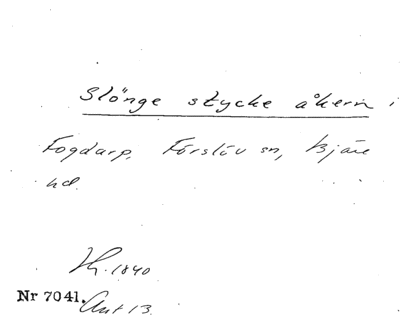 Slönge stycke åkern i
Fogdarp, Förslöv sn, Bjäre
hd.
Lh. 1840
Nr 7041. Akt 13.